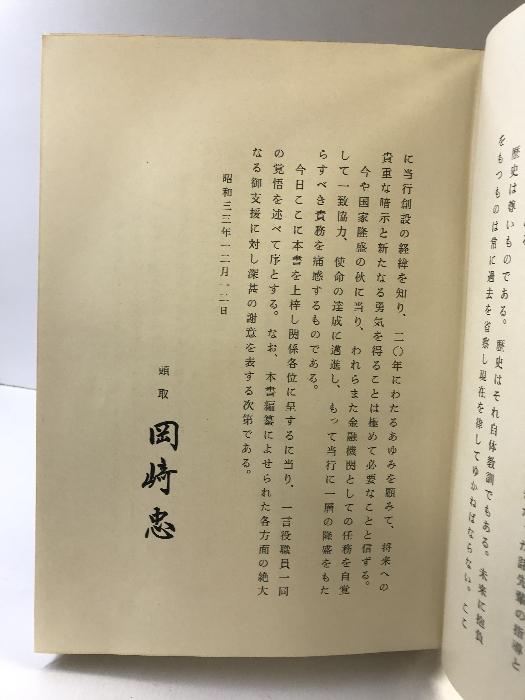 歴史は尊いものである。歴史はそれ自体教訓でもある。未来に抱負
をもつものは常に過去を省察し現在を律してゆかねばならない。ここ
に当行創設の経緯を知り、二〇年にわたるあゆみを顧みて、将来への
貴重な暗示と新たなる勇気を得ることは極めて必要なことと信ずる。
今や国家隆盛の秋に当り、われらまた金融機関としての任務を自覚
して一致協力、使命の達成に邁進し、もって当行に一層の隆盛をもた
らすべき責務を痛感するものである。
今日ここに本書を上梓し関係各位に呈するに当り、一言役職員一同
の覚悟を述べて序とする。なお、本書編纂によせられた各方面の絶大
なる御支援に対し深甚の謝意を表する次第である。
昭和三三年一二月一二日
頭取
岡崎忠